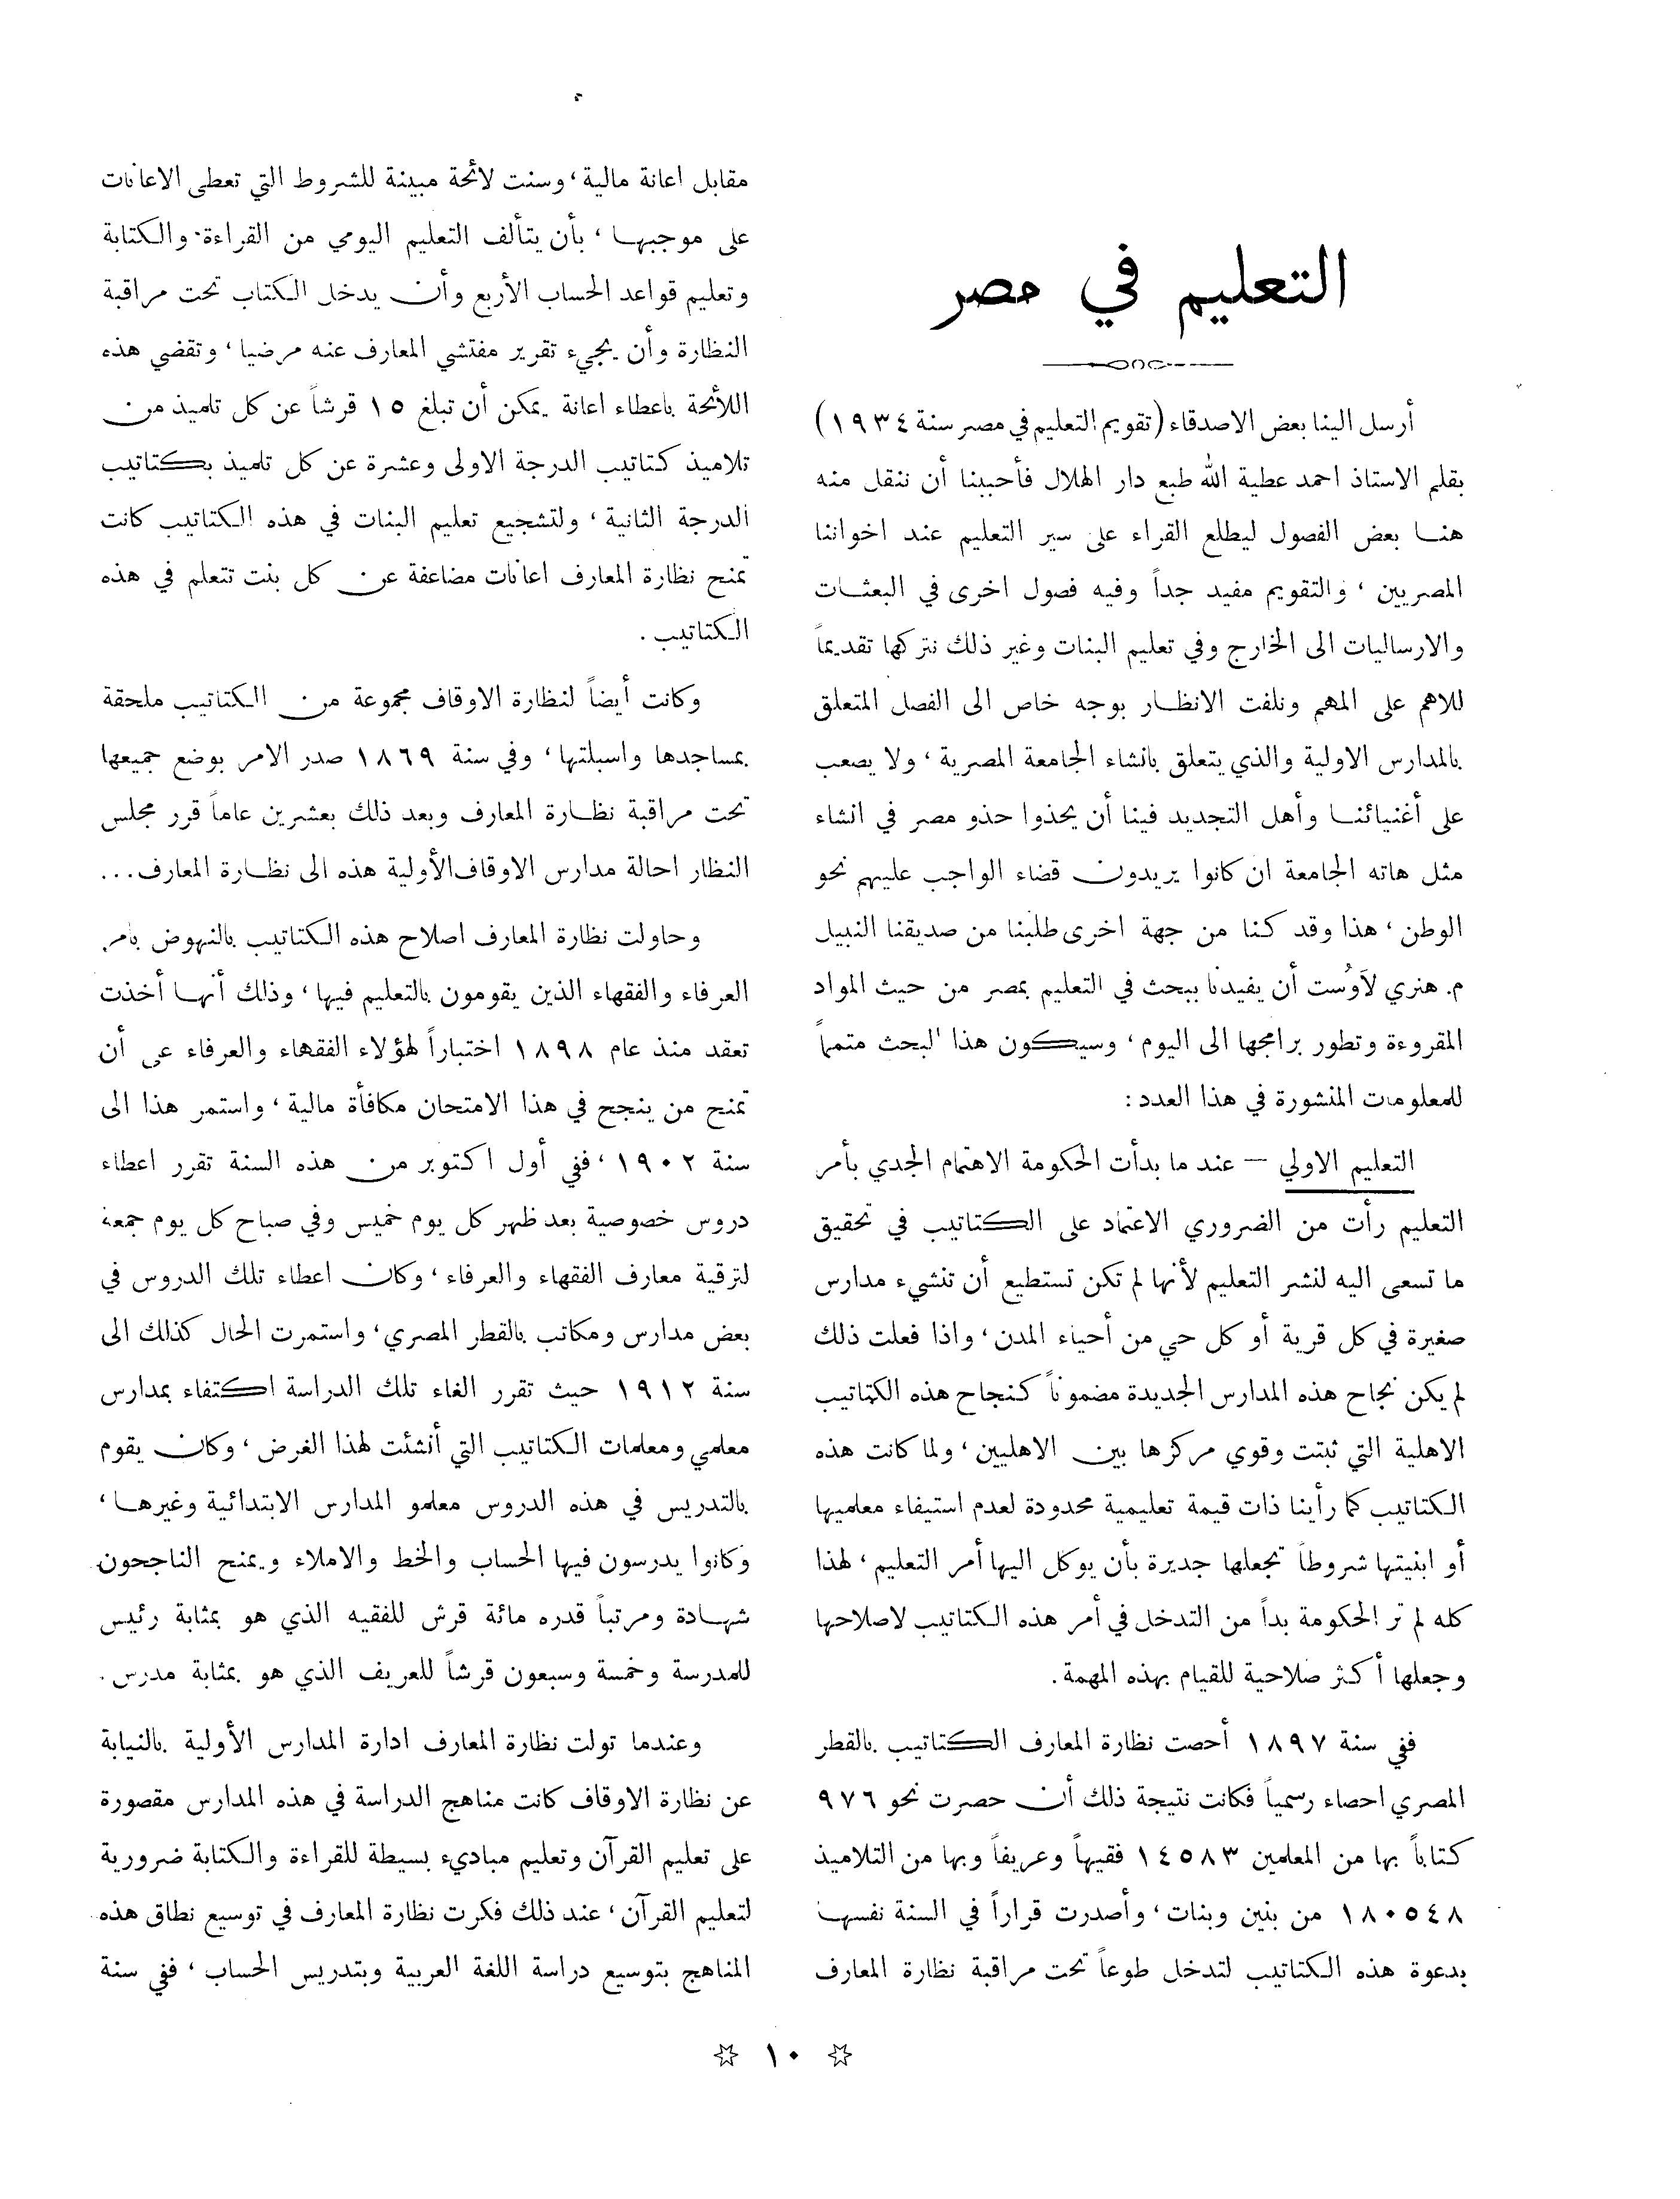 التعليم في مصر
أرسل الينا بعض الاصدقاء (تقويم التعليم في مصر سنة ١٩٣٤)
بقلم الاستاذ احمد عطية الله طبع دار الهلال فأحببنا أن ننقل منه
هنا بعض الفصول ليطلع القراء على سير التعليم عند اخواننا
المصريين ، والتقويم مفيد جداً وفيه فصول اخرى في البعثات
والارساليات الى الخارج وفي تعليم البنات وغير ذلك نتركها تقديماً
للاهم على المهم ونلفت الانظار بوجه خاص الى الفصل المتعلق
بالمدارس الاولية والذي يتعلق بانشاء الجامعة المصرية ، ولا يصعب
على أغنيائنا وأهل التجديد فينا أن يحذوا حذو مصر في انشاء
مثل هاته الجامعة ان كانوا يريدون قضاء الواجب عليهم نحو
الوطن ، هذا وقد كنا من جهة اخرى طلبنا من صديقنا النبيل
م. هنري لاَوُست أن يفيدنا ببحث في التعليم بمصر من حيث المواد
المقروءة وتطور برامجها الى اليوم ، وسيكون هذا البحث متمماً
للمعلومات المنشورة في هذا العدد :
التعليم الاولي — عند ما بدأت الحكومة الاهتمام الجدي بأمر
التعليم رأت من الضروري الاعتماد على الكتاتيب في تحقيق
ما تسعى اليه لنشر التعليم لأنها لم تكن تستطيع أن تنشيء مدارس
صغيرة في كل قرية أو كل حي من أحياء المدن ، واذا فعلت ذلك
لم يكن نجاح هذه المدارس الجديدة مضموناً كنجاح هذه الكتاتيب
الاهلية التي ثبتت وقوي مركزها بين الاهليين ، ولما كانت هذه
الكتاتيب كما رأينا ذات قيمة تعليمية محدودة لعدم استيفاء معلميها
أو ابنيتها شروطاً تجعلها جديرة بأن يوكل اليها أمر التعليم ، لهذا
كله لم تر الحكومة بداً من التدخل في أمر هذه الكتاتيب لاصلاحها
وجعلها أكثر صلاحية للقيام بهذه المهمة.
ففي سنة ١٨٩٧ أحصت نظارة المعارف الكتاتيب بالقطر
المصري احصاء رسمياً فكانت نتيجة ذلك أن حصرت نحو ٩٧٦
كتاباً بها من المعلمين ١٤٥٨٣ فقيهاً وعريفاً وبها من التلاميذ
١٨٠٥٤٨ من بنين وبنات ، وأصدرت قراراً في السنة نفسها
بدعوة هذه الكتاتيب لتدخل طوعاً تحت مراقبة نظارة المعارف
مقابل اعانة مالية ، وسنت لائحة مبينة للشروط التي تعطى الاعانات
على موجبها ، بأن يتألف التعليم اليومي من القراءة والكتابة
وتعليم قواعد الحساب الأربع وأن يدخل الكتاب تحت مراقبة
النظارة وأن يجيء تقرير مفتشي المعارف عنه مرضيا ، وتقضي هذه
اللائحة باعطاء اعانة يمكن أن تبلغ ١٥ قرشاً عن كل تلميذ من
تلاميذ كتاتيب الدرجة الاولى وعشرة عن كل تلميذ بكتاتيب
الدرجة الثانية ، ولتشجيع تعليم البنات في هذه الكتاتيب كانت
تمنح نظارة المعارف اعانات مضاعفة عن كل بنت تتعلم في هذه
الكتاتيب .
وكانت أيضاً لنظارة الاوقاف مجموعة من الكتاتيب ملحقة
بمساجدها واسبلتها ، وفي سنة ١٨٦٩ صدر الامر بوضع جميعها
تحت مراقبة نظارة المعارف وبعد ذلك بعشرين عاماً قرر مجلس
النظار احالة مدارس الاوقاف الأولية هذه الى نظارة المعارف...
وحاولت نظارة المعارف اصلاح هذه الكتاتيب بالنهوض بأمر
العرفاء والفقهاء الذين يقومون بالتعليم فيها ، وذلك أنها أخذت
تعقد منذ عام ١٨٩٨ اختباراً لهؤلاء الفقهاء والعرفاء عى أن
تمنح من ينجح في هذا الامتحان مكافأة مالية ، واستمر هذا الى
سنة ١٩٠٢ ، ففي أول اكتوبر من هذه السنة تقرر اعطاء
دروس خصوصية بعد ظهر كل يوم خميس وفي صباح كل يوم جمعة
لترقية معارف الفقهاء والعرفاء ، وكان اعطاء تلك الدروس في
بعض مدارس ومكاتب بالقطر المصري ، واستمرت الحال كذلك الى
سنة ١٩١٢ حيث تقرر الغاء تلك الدراسة اكتفاء بمدارس
معلمي ومعلمات الكتاتيب التي أنشئت لهذا الغرض ، وكان يقوم
بالتدريس في هذه الدروس معلمو المدارس الابتدائية وغيرها ،
وكانوا يدرسون فيها الحساب والخط والاملاء ويمنح الناجحون
شهادة ومرتباً قدره مائة قرش للفقيه الذي هو بمثابة رئيس
للمدرسة وخمسة وسبعون قرشاً للعريف الذي هو بمثابة مدرس .
وعندما تولت نظارة المعارف ادارة المدارس الأولية بالنيابة
عن نظارة الاوقاف كانت مناهج الدراسة في هذه المدارس مقصورة
على تعليم القرآن وتعليم مباديء بسيطة للقراءة والكتابة ضرورية
لتعليم القرآن ، عند ذلك فكرت نظارة المعارف في توسيع نطاق هذه
المناهج بتوسيع دراسة اللغة العربية وبتدريس الحساب ، ففي سنة
☆ ١٠ ☆